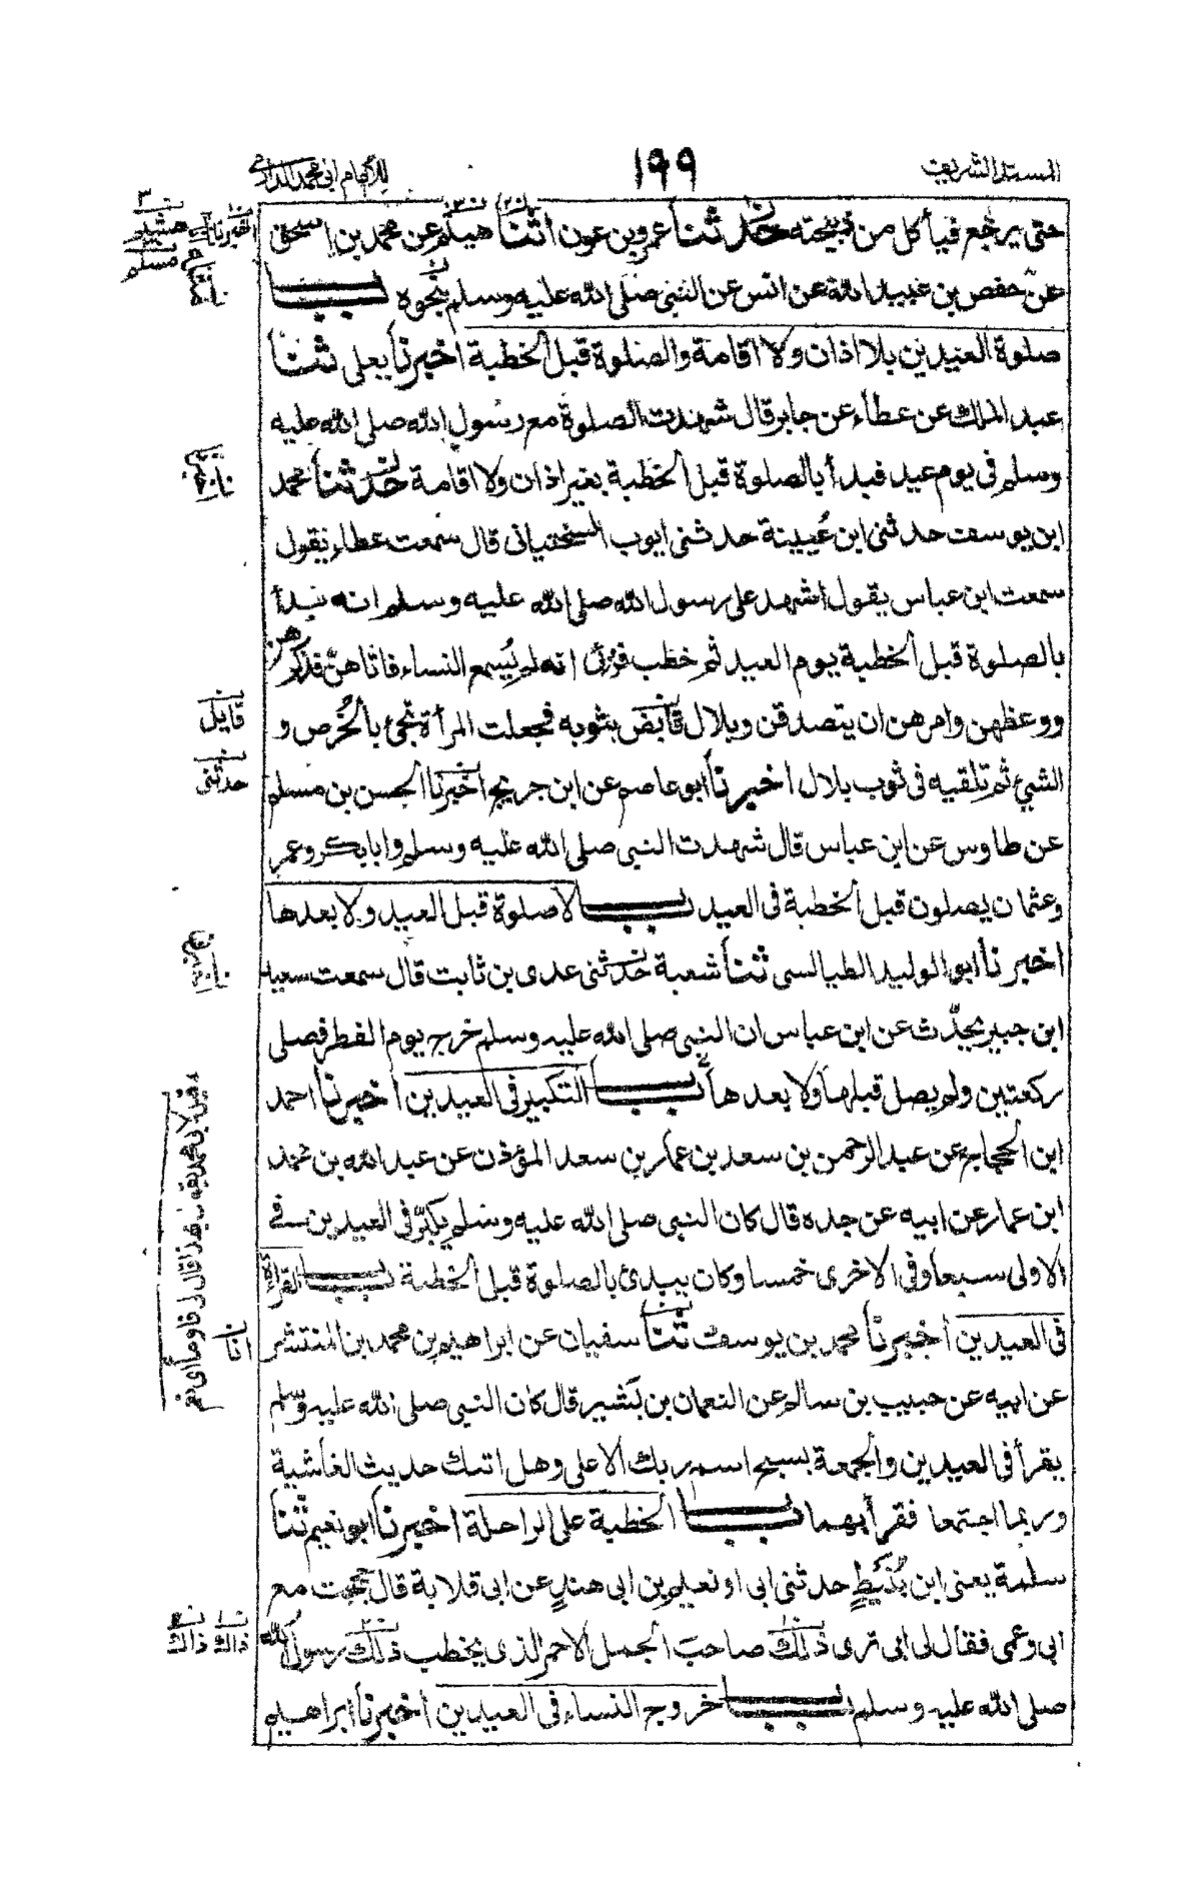 المسند الشريف
١٩٩
للامام ابى محمد الدارمى
حتى يرجع فيأكل من ذبيحته حدثنا عمرو بن عون اثنا هيثم عن محمد بن اسحق
عن حفص بن عبيد الله عن انس عن النبى صلى الله عليه وسلم بنحوه باب
صلوة العيدين بلا اذان ولا اقامة والصلوة قبل الخطبة اخبرنا يعلى ثنا
عبد الملك عن عطاء عن جابر قال شهدت الصلوة مع رسول الله صلى الله عليه
وسلم فى يوم عيد فبدأ بالصلوة قبل الخطبة بغير اذان ولا اقامة حدثنا محمد
ابن يوسف حدثنى ابن عُيينة حدثنى ايوب السختيانى قال سمعت عطاء يقول
سمعت ابن عباس يقول اشهد على رسول الله صلى الله عليه وسلم انه بدأ
بالصلوة قبل الخطبة يوم العيد ثم خطب فرُئى انه لم يُسمع النساء فاتاهن فذكرهن
ووعظهن وامرهن ان يتصدقن وبلال قابض بثوبه فجعلت المرأة تجئ بالخُرص و
الشئ ثم تلقيه فى ثوب بلال اخبرنا ابو عاصم عن ابن جريج اخبرنا الحسن بن مسلم
عن طاوس عن ابن عباس قال شهدت النبى صلى الله عليه وسلم وابا بكر وعمر
وعثمان يصلون قبل الخطبة فى العيد باب لا صلوة قبل العيد ولا بعدها
اخبرنا ابو الوليد الطيالسى ثنا شعبة حدثنى عدى بن ثابت قال سمعت سعيد
ابن جبير يحدّث عن ابن عباس ان النبى صلى الله عليه وسلم خرج يوم الفطر فصلى
ركعتين ولم يصل قبلها ولا بعدها باب التكبير فى العيدين اخبرنا احمد
ابن الحجاج عن عبد الرحمن بن سعد بن عمار بن سعد المؤذن عن عبد الله بن محمد
ابن عمار عن ابيه عن جده قال كان النبى صلى الله عليه وسلم يكبّر فى العيدين فى
الاولى سبعا وفى الاخرى خمسا وكان يبدئ بالصلوة قبل الخطبة باب القراءة
فى العيدين اخبرنا محمد بن يوسف ثنا سفيان عن ابراهيم بن محمد بن المنتشر
عن ابيه عن حبيب بن سالم عن النعمان بن بشير قال كان النبى صلى الله عليه وسلم
يقرأ فى العيدين والجمعة بسبح اسم ربك الاعلى وهل اتىك حديث الغاشية
وربما اجتمعا فقرأ بهما باب الخطبة على الراحلة اخبرنا ابو نعيم ثنا
سلمة يعنى ابن نُبَيطٍ حدثنى ابى او نعيم بن ابى هندٍ عن ابى قلابة قال حججت مع
ابى وعمى فقال لى ابى ترى ذلك صاحب الجمل الاحمر الذى يخطب ذلك رسول الله
صلى الله عليه وسلم باب خروج النساء فى العيدين اخبرنا ابراهيم
هشيم
مسلم
قايل
حدثنى
انا
ذاك ذاك